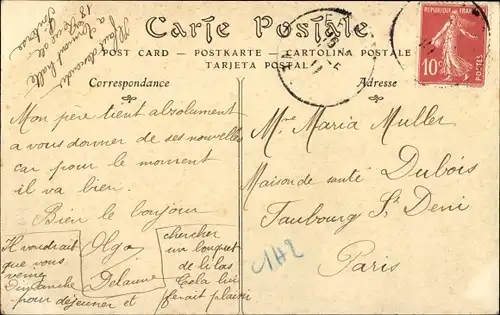 Carte Postale
POST CARD - POSTKARTE - CARTOLINA POSTALE
TARJETA POSTAL
Correspondance
Adresse
REPUBLIQUE FRANÇAISE
10c
POSTES
Mon père tient absolument
a vous donner de ses nouvelles
car pour le moment
il va bien.
Bien le bonjour
Olga
Delaune
Il voudrait
que vous
venie
Dimanche
pour déjeuner et
chercher
un bouquet
de lilas
Cela lui
ferait plaisir
Mme Maria Muller
Maison de santé Dubois
Faubourg St Deni
Paris